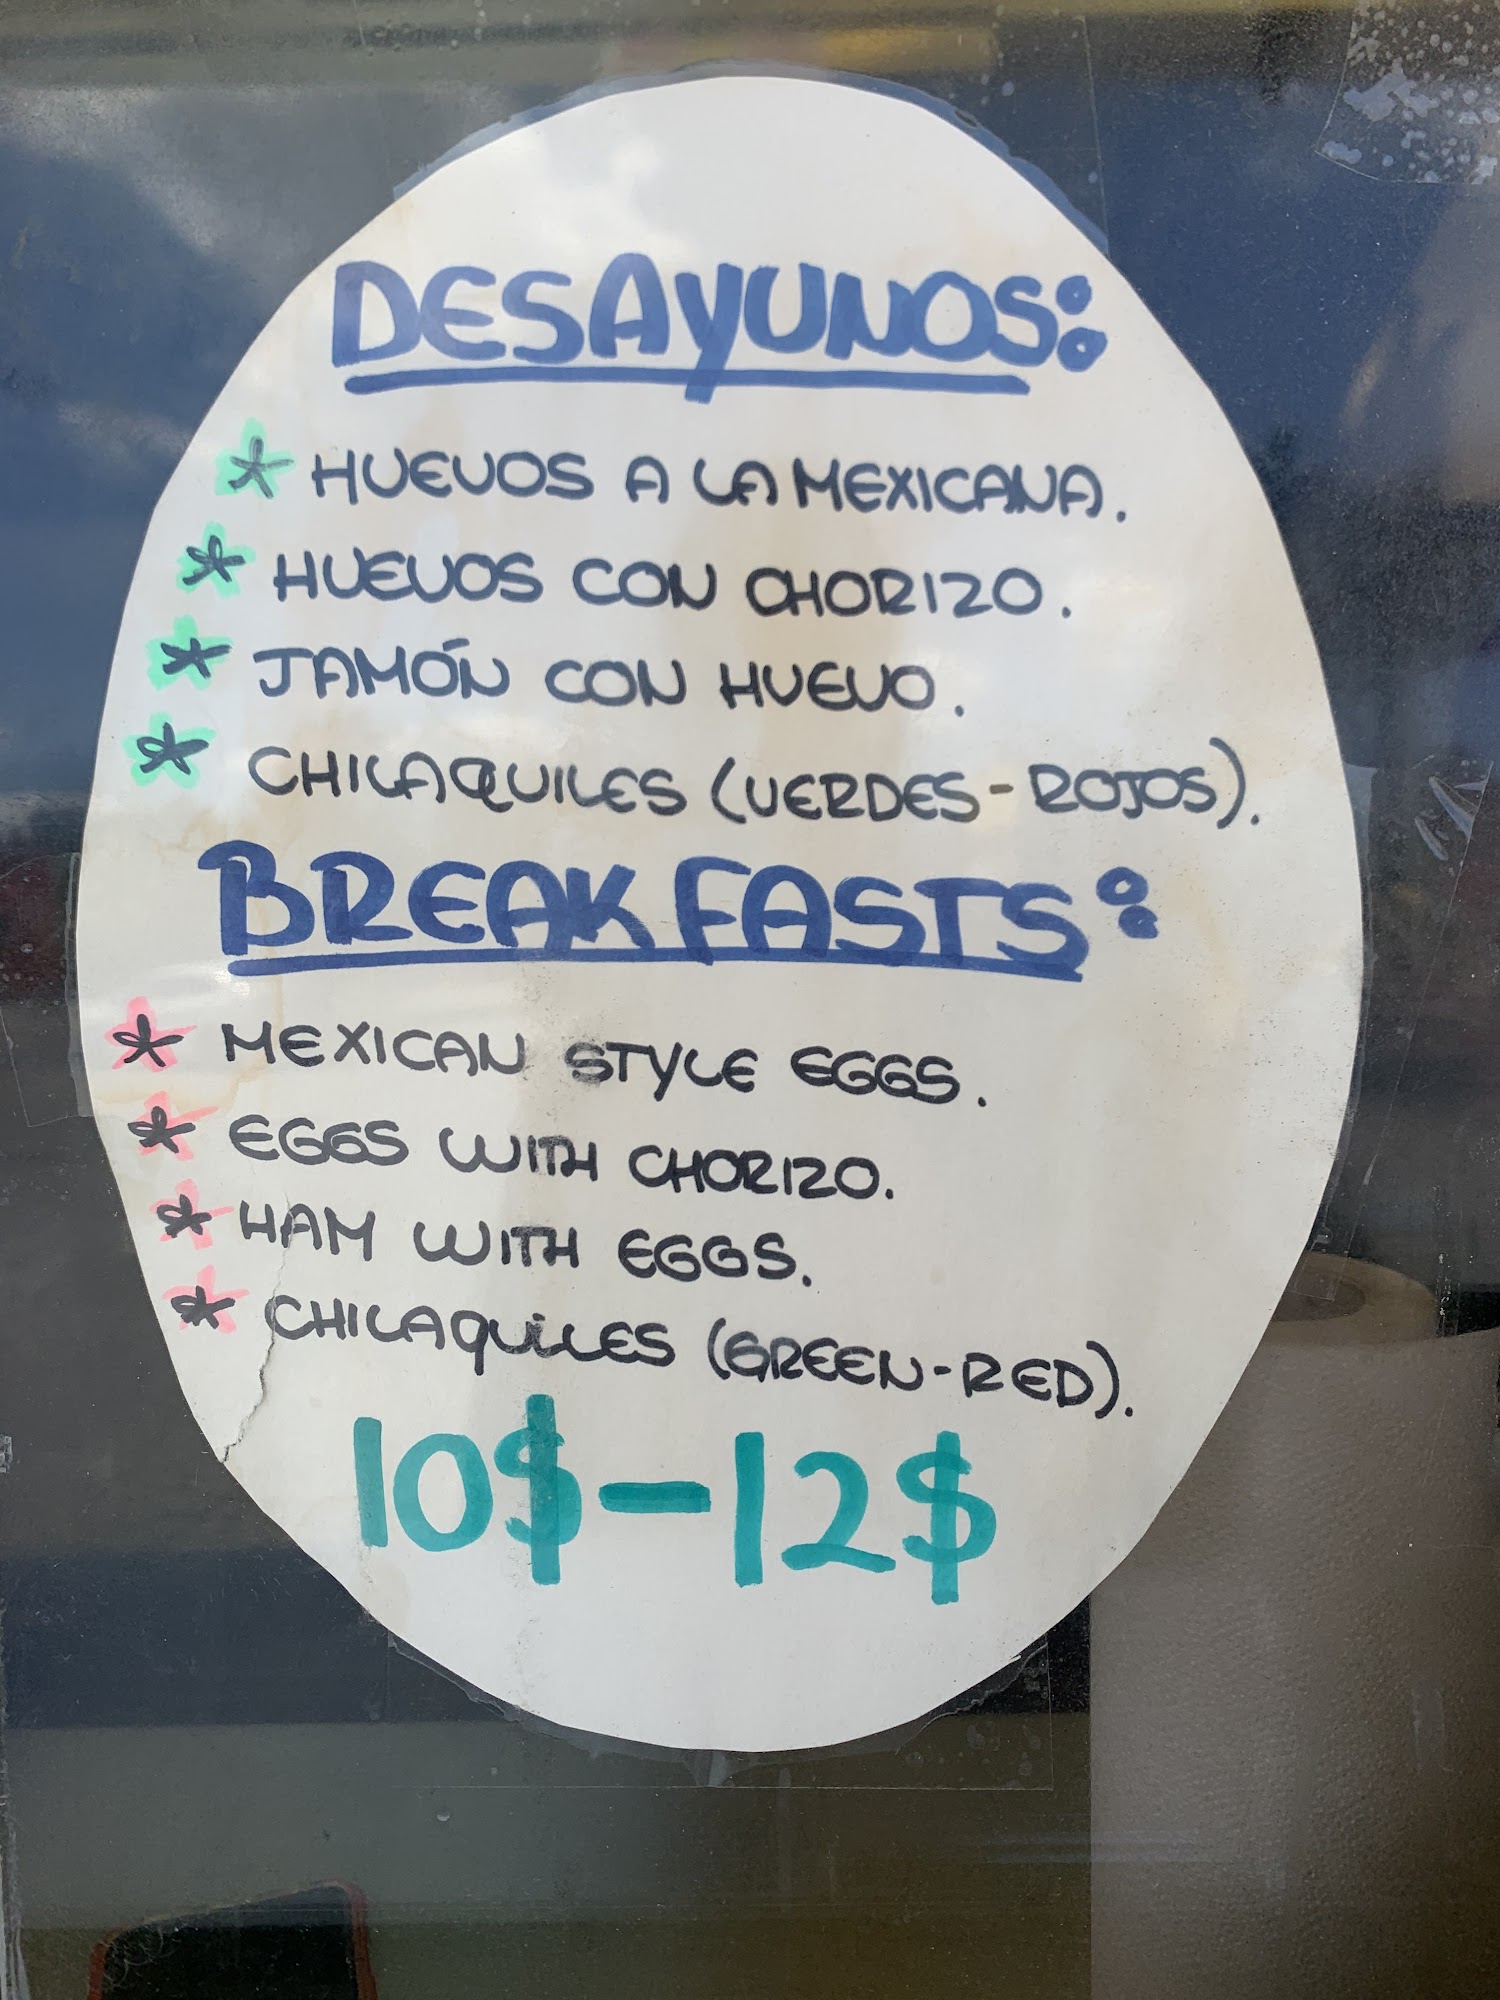 DESAYUNOS:
* HUEVOS A LA MEXICANA.
* HUEVOS CON CHORIZO.
* JAMÓN CON HUEVO.
* CHILAQUILES (VERDES-ROJOS).
BREAKFASTS:
* MEXICAN STYLE EGGS.
* EGGS WITH CHORIZO.
* HAM WITH EGGS.
* CHILAQUILES (GREEN-RED).
10$-12$